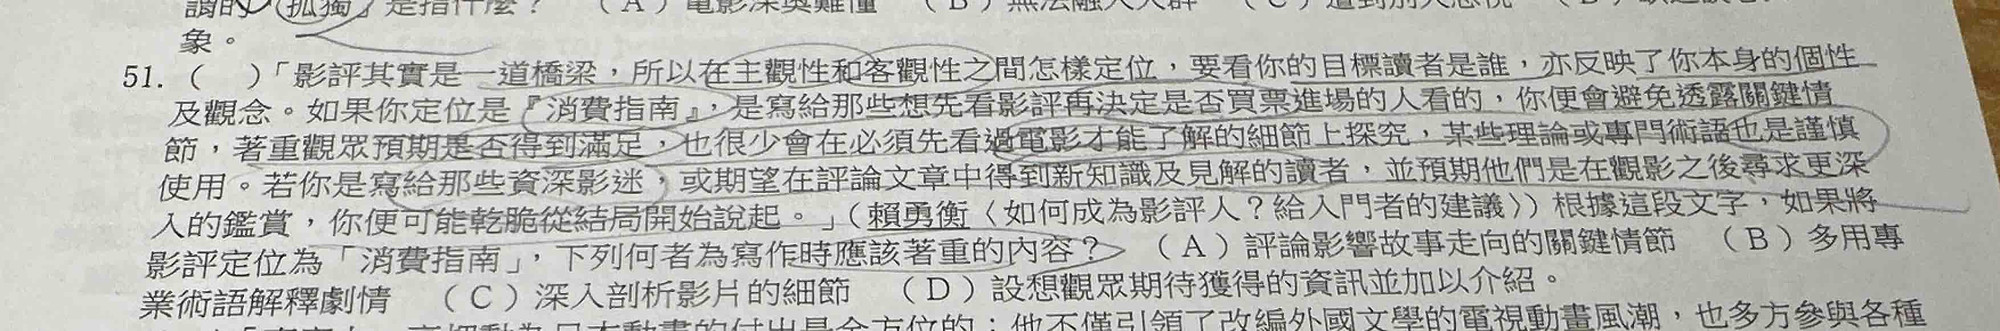 謂的「孤獨」是指什麼？ （A）電影深奧難懂 （B）無法融入人群 （C）遭到別人忽視 （D）
象。
51. （　）「影評其實是一道橋梁，所以在主觀性和客觀性之間怎樣定位，要看你的目標讀者是誰，亦反映了你本身的個性
及觀念。如果你定位是『消費指南』，是寫給那些想先看影評再決定是否買票進場的人看的，你便會避免透露關鍵情
節，著重觀眾預期是否得到滿足，也很少會在必須先看過電影才能了解的細節上探究，某些理論或專門術語也是謹慎
使用。若你是寫給那些資深影迷，或期望在評論文章中得到新知識及見解的讀者，並預期他們是在觀影之後尋求更深
入的鑑賞，你便可能乾脆從結局開始說起。」（賴勇衡〈如何成為影評人？給入門者的建議〉）根據這段文字，如果將
影評定位為「消費指南」，下列何者為寫作時應該著重的內容？ （A）評論影響故事走向的關鍵情節 （B）多用專
業術語解釋劇情 （C）深入剖析影片的細節 （D）設想觀眾期待獲得的資訊並加以介紹。
日本動畫的付出是全方位的：他不僅引領了改編外國文學的電視動畫風潮，也多方參與各種